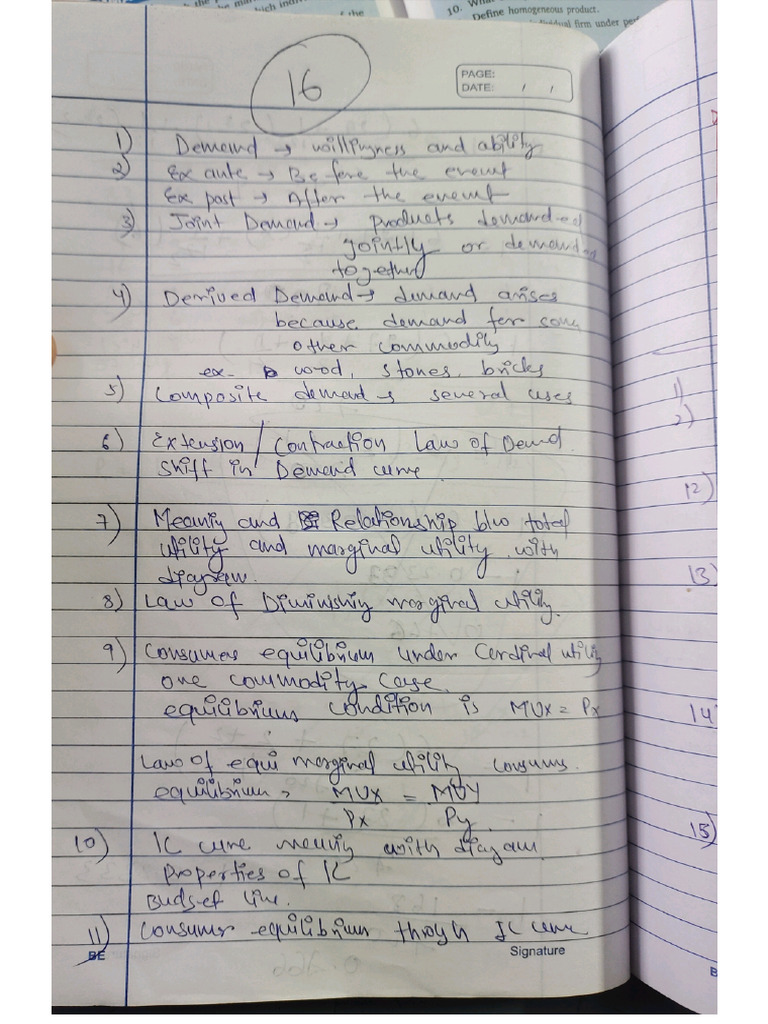 10. What
Define homogeneous product.
individual firm under per
which indi
of the
16
PAGE:
DATE: / /
1) Demand → willingness and ability
2) Ex ante → Before the event
Ex post → After the event
3) Joint Demand → products demand-ed
jointly or demand-ed
together
4) Derived Demand → demand arises
because demand for some
other commodity
ex. wood, stones, bricks
5) Composite demand → several uses
6) Extension / Contraction Law of Demd.
Shift in Demand curve.
7) Meaning and Relationship b/w total
utility and marginal utility with
diagram.
8) Law of Diminishing marginal utility.
9) Consumers equilibrium under Cardinal utility
one commodity case.
equilibrium condition is MUx = Px
Law of equi marginal utility consums.
equilibrium = MUx = MUY
Px Py
10) IC curve meaning with diagram.
properties of IC
Budget line.
11) Consumer equilibrium through IC curve
BE
Signature
1)
2)
12)
13)
14
15)
B